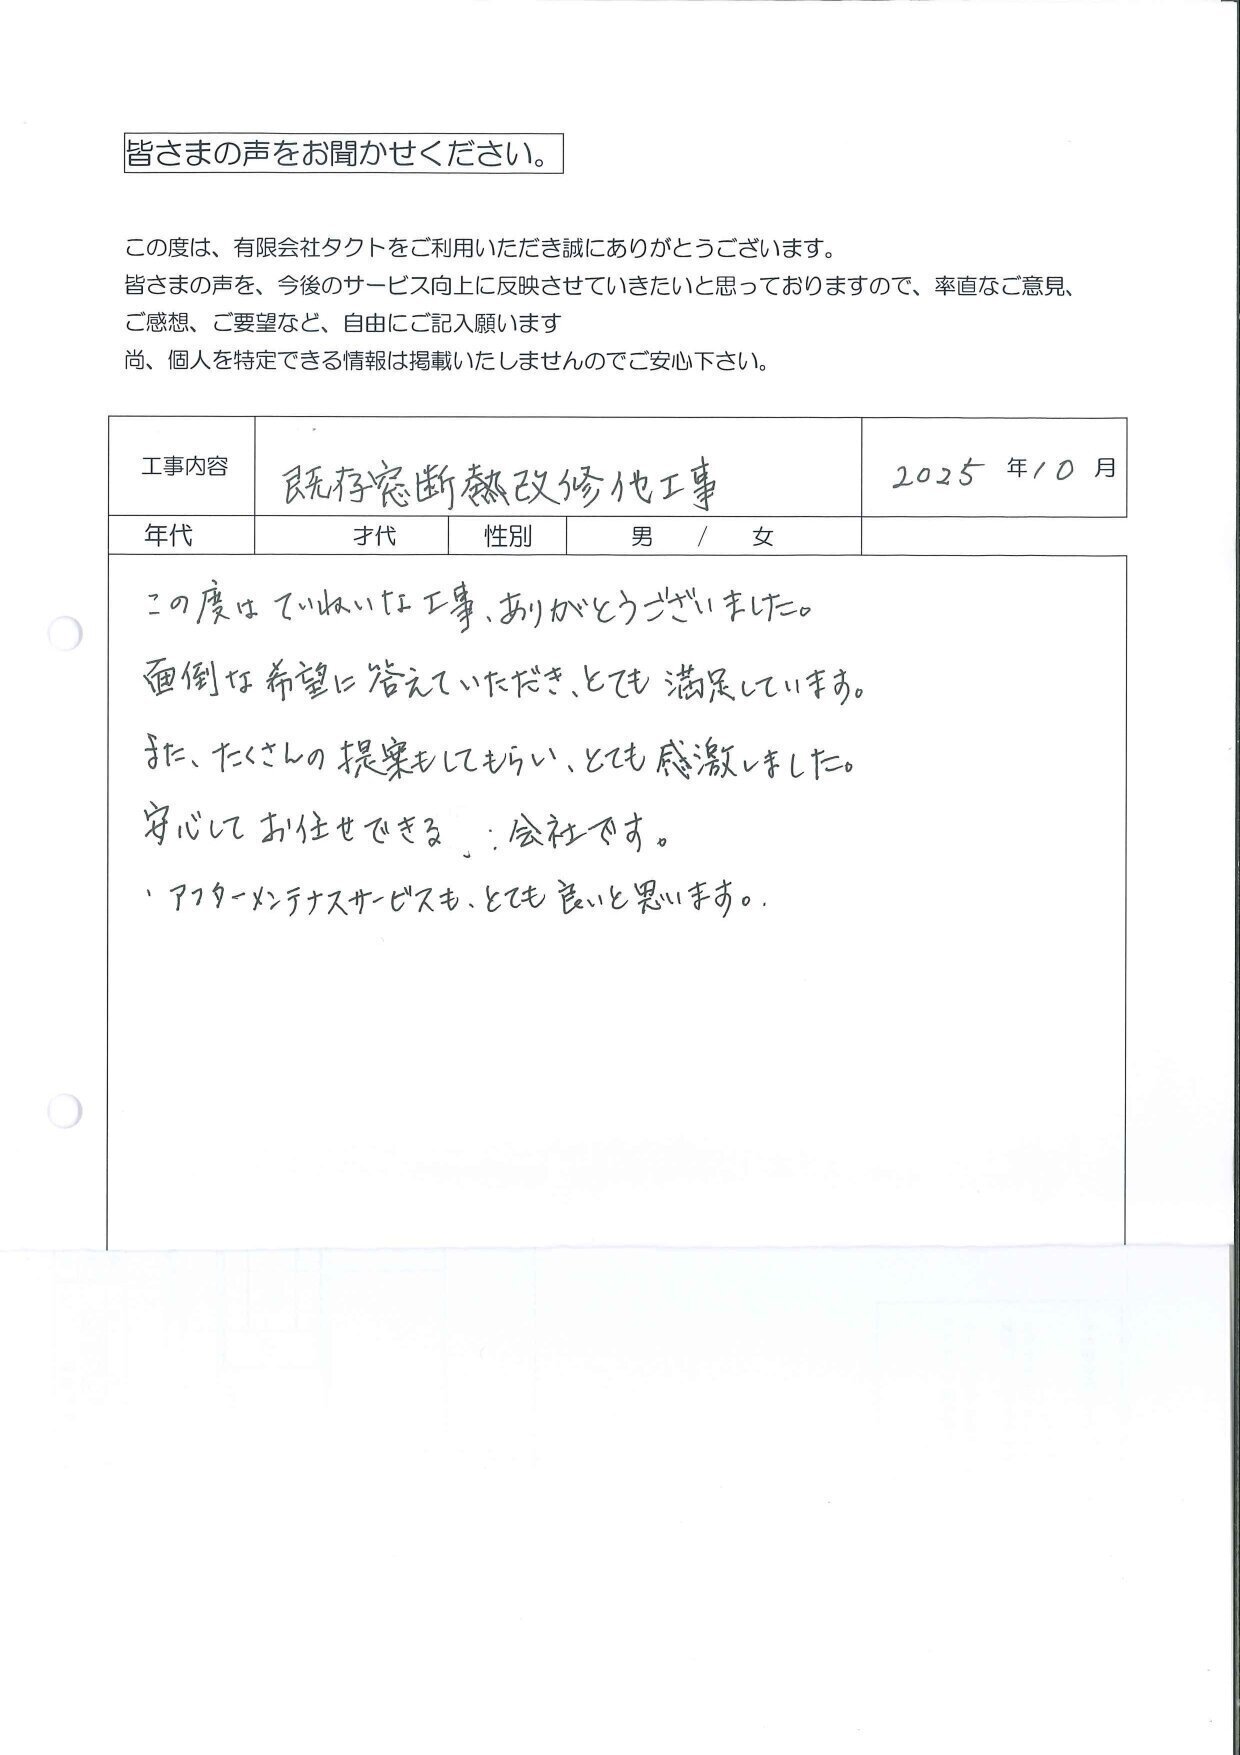 皆さまの声をお聞かせください。
この度は、有限会社タクトをご利用いただき誠にありがとうございます。
皆さまの声を、今後のサービス向上に反映させていきたいと思っておりますので、率直なご意見、
ご感想、ご要望など、自由にご記入願います
尚、個人を特定できる情報は掲載いたしませんのでご安心下さい。
工事内容 既存窓断熱改修他工事 2025 年10 月
年代 才代 性別 男 / 女
この度はていねいな工事、ありがとうございました。
面倒な希望に答えていただき、とても満足しています。
また、たくさんの提案もしてもらい、とても感激しました。
安心してお任せできる 会社です。
・アフターメンテナスサービスも、とても良いと思います。